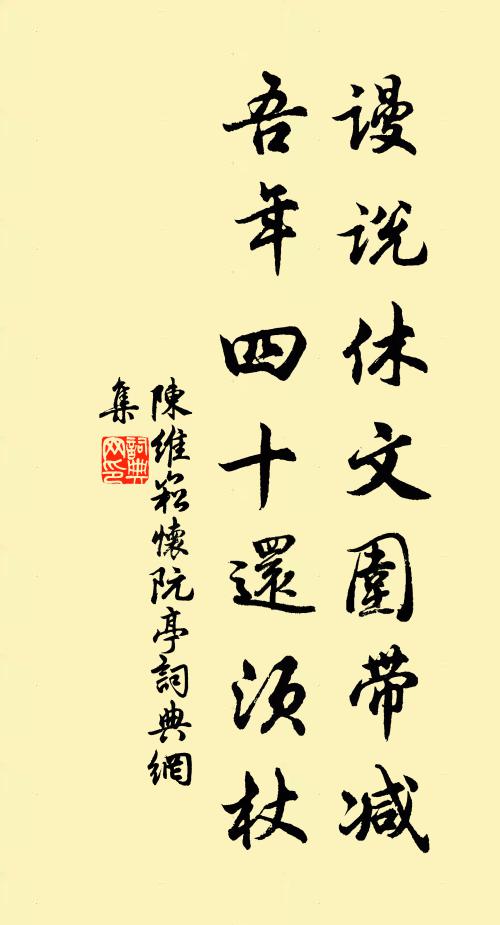 谩说休文圍带减
吾年四十還须杖
陳維崧懷阮亭詞典網
集
詞典
网印